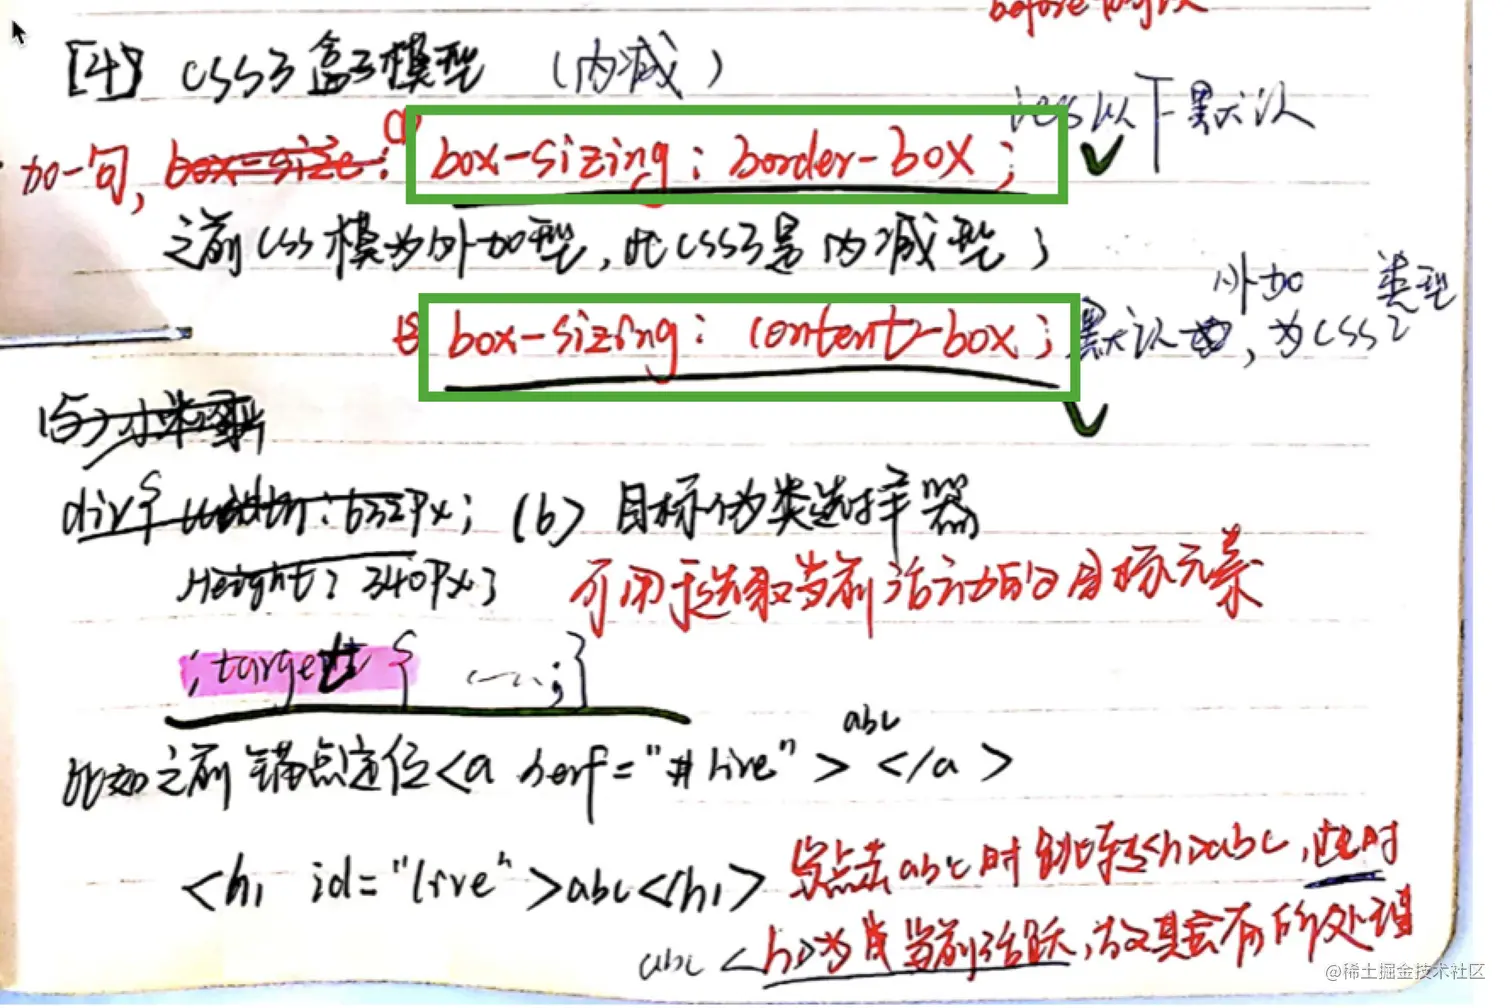 [4] CSS3盒子模型 (内减)
ie8以下默认
加一句, box-size: (1) box-sizing: border-box;
之前css模为外加型, 此css3是内减型;
外加 类型
box-sizing: content-box; 默认, 为CSS2
div{ width: 632px; (6) 目标伪类选择器
Height: 340px; 可用于选取当前活动的目标元素
:target { ......; }
比如之前锚点定位<a herf="#live"> abc </a>
<h1 id="live">abc</h1> 当点击abc时 跳转<h1>abc, 此时
abc <h1>为成当前活跃, 故其会有所处理
@稀土掘金技术社区